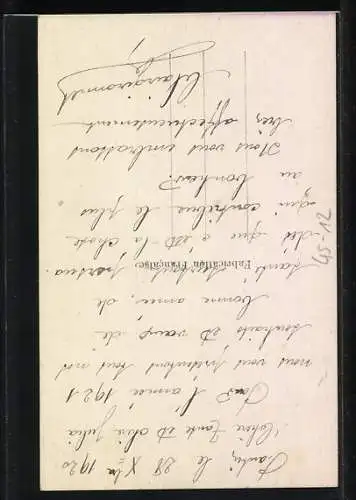 le 28 Xbre 1920
Chère Tante et chère Julia
Pour l'année 1921
nous vous présentons tous nos
souhaits et vœux de
bonne année, de
santé
dès que c'est la chose
qui contribue le plus
au bonheur.
Nous vous embrassons
très affectueusement
Fabrication Française
45-12